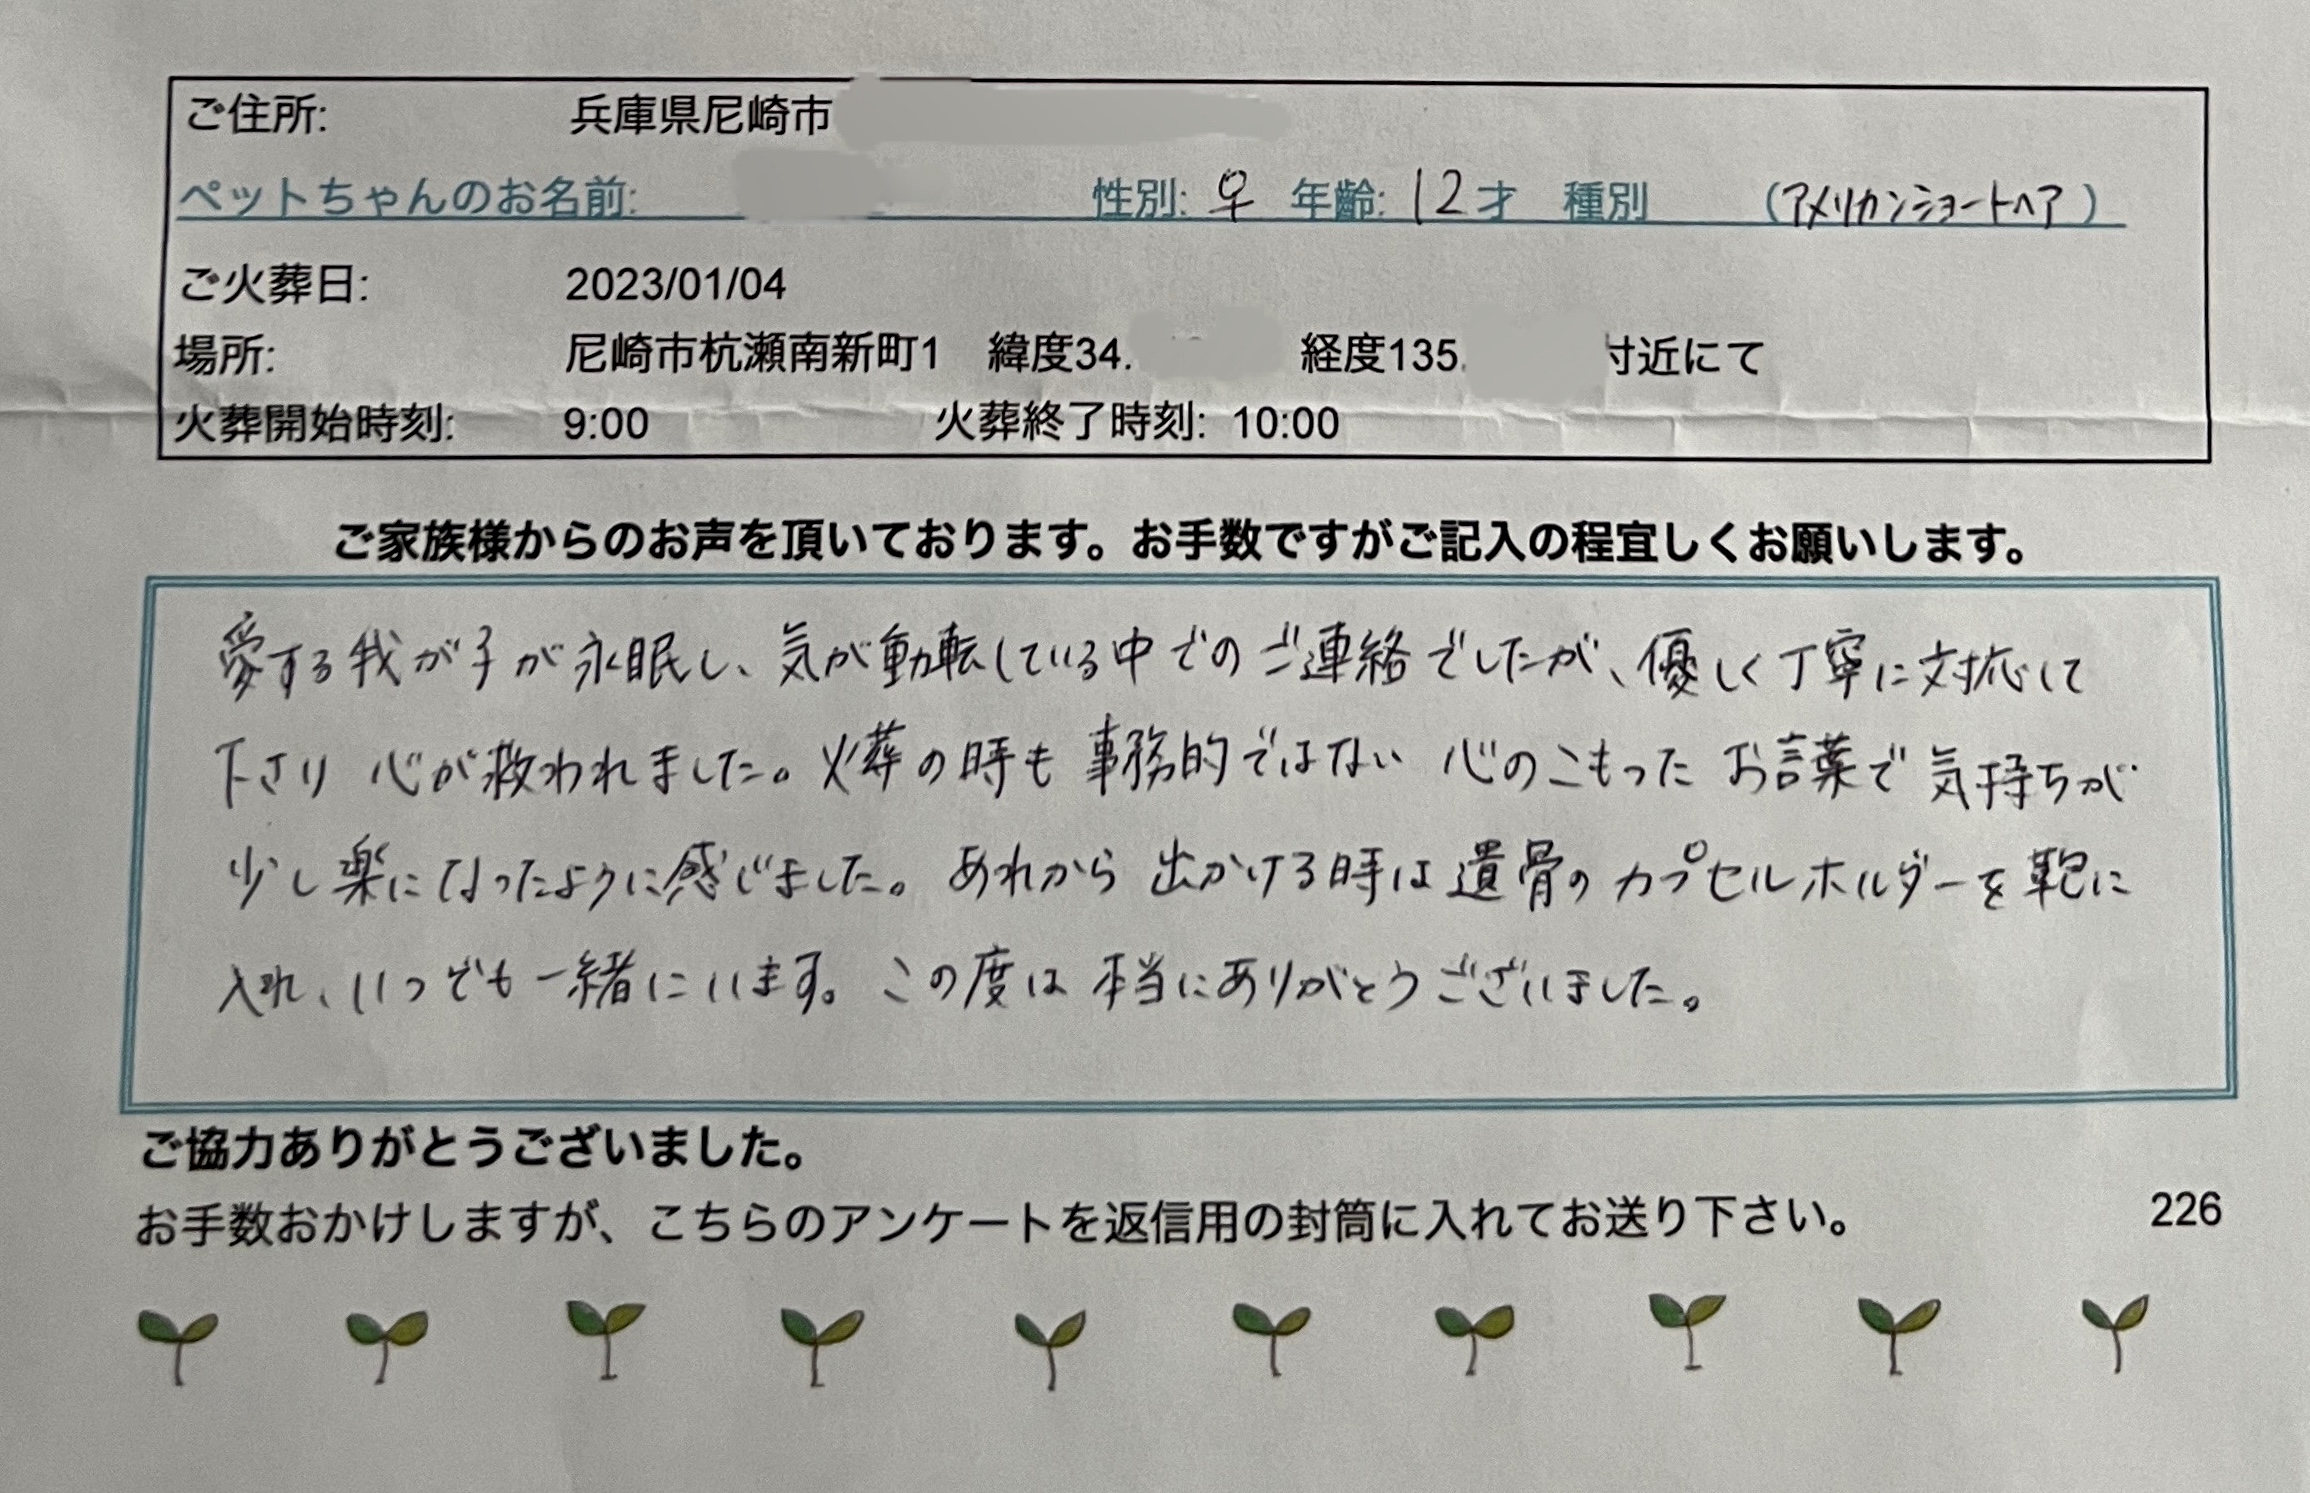 ご住所: 兵庫県尼崎市
ペットちゃんのお名前: 性別: ♀ 年齢: 12才 種別 (アメリカンショートヘア)
ご火葬日: 2023/01/04
場所: 尼崎市杭瀬南新町1 緯度34. 経度135. 付近にて
火葬開始時刻: 9:00 火葬終了時刻: 10:00
ご家族様からのお声を頂いております。お手数ですがご記入の程宜しくお願いします。
愛する我が子が永眠し、気が動転している中でのご連絡でしたが、優しく丁寧に対応して
下さり 心が救われました。火葬の時も 事務的ではない 心のこもった お言葉で 気持ちが
少し楽になったように感じました。あれから 出かける時は 遺骨の カプセルホルダーを 鞄に
入れ、いつでも一緒にいます。この度は 本当にありがとうございました。
ご協力ありがとうございました。
お手数おかけしますが、こちらのアンケートを返信用の封筒に入れてお送り下さい。 226